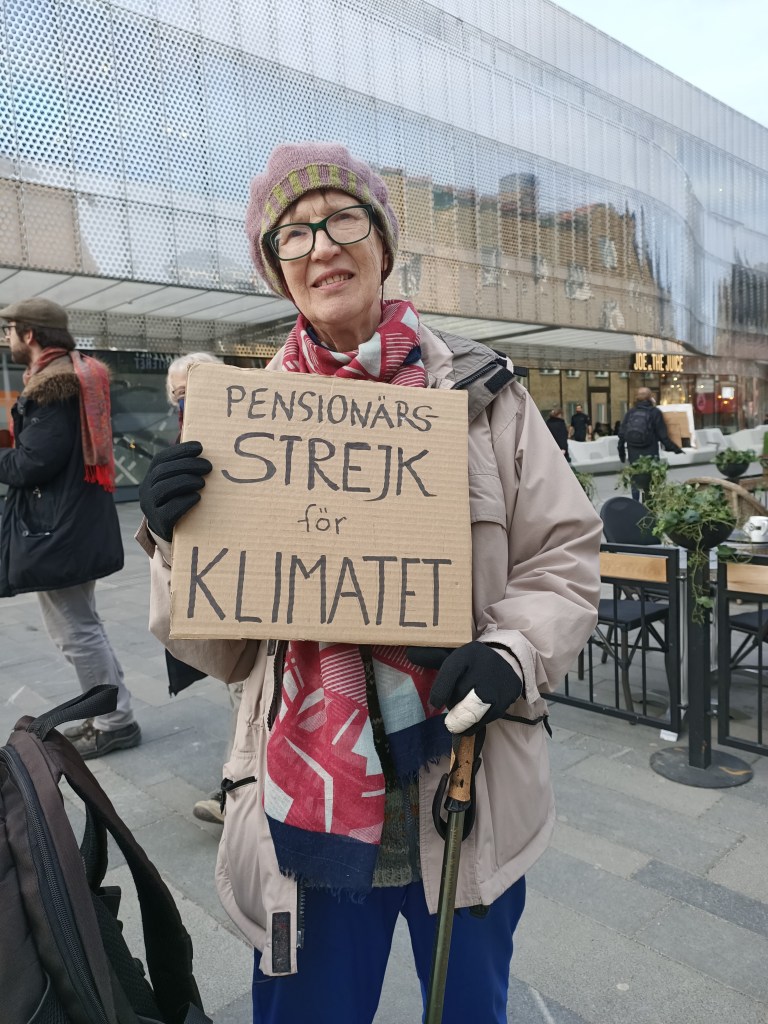 PENSIONÄRS-
STREJK
för
KLIMATET
JOE & THE JUICE